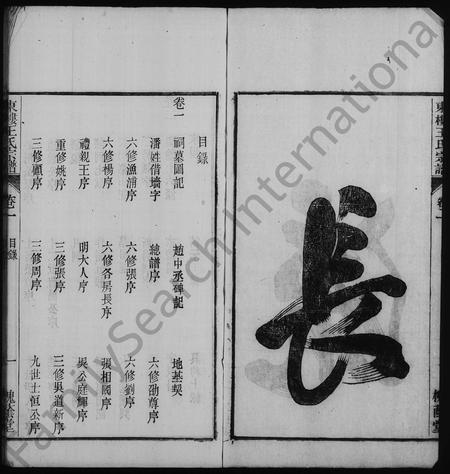 東樓王氏宗譜
卷一
長
目錄
卷一
祠墓圖記 趙中丞碑記 地基契
潘姓借墻字 總譜序 六修劭尊序
六修漁浦序 六修張序 六修劉序
六修楊序 六修各房長序 張相國序
禮親王序 明大人序 吳公庭輝序
重修姚序 三修張序 三修吳道新序
三修顧序 三修周序 九世士恒公序
東樓王氏宗譜
卷一
目錄
一
FamilySearch International